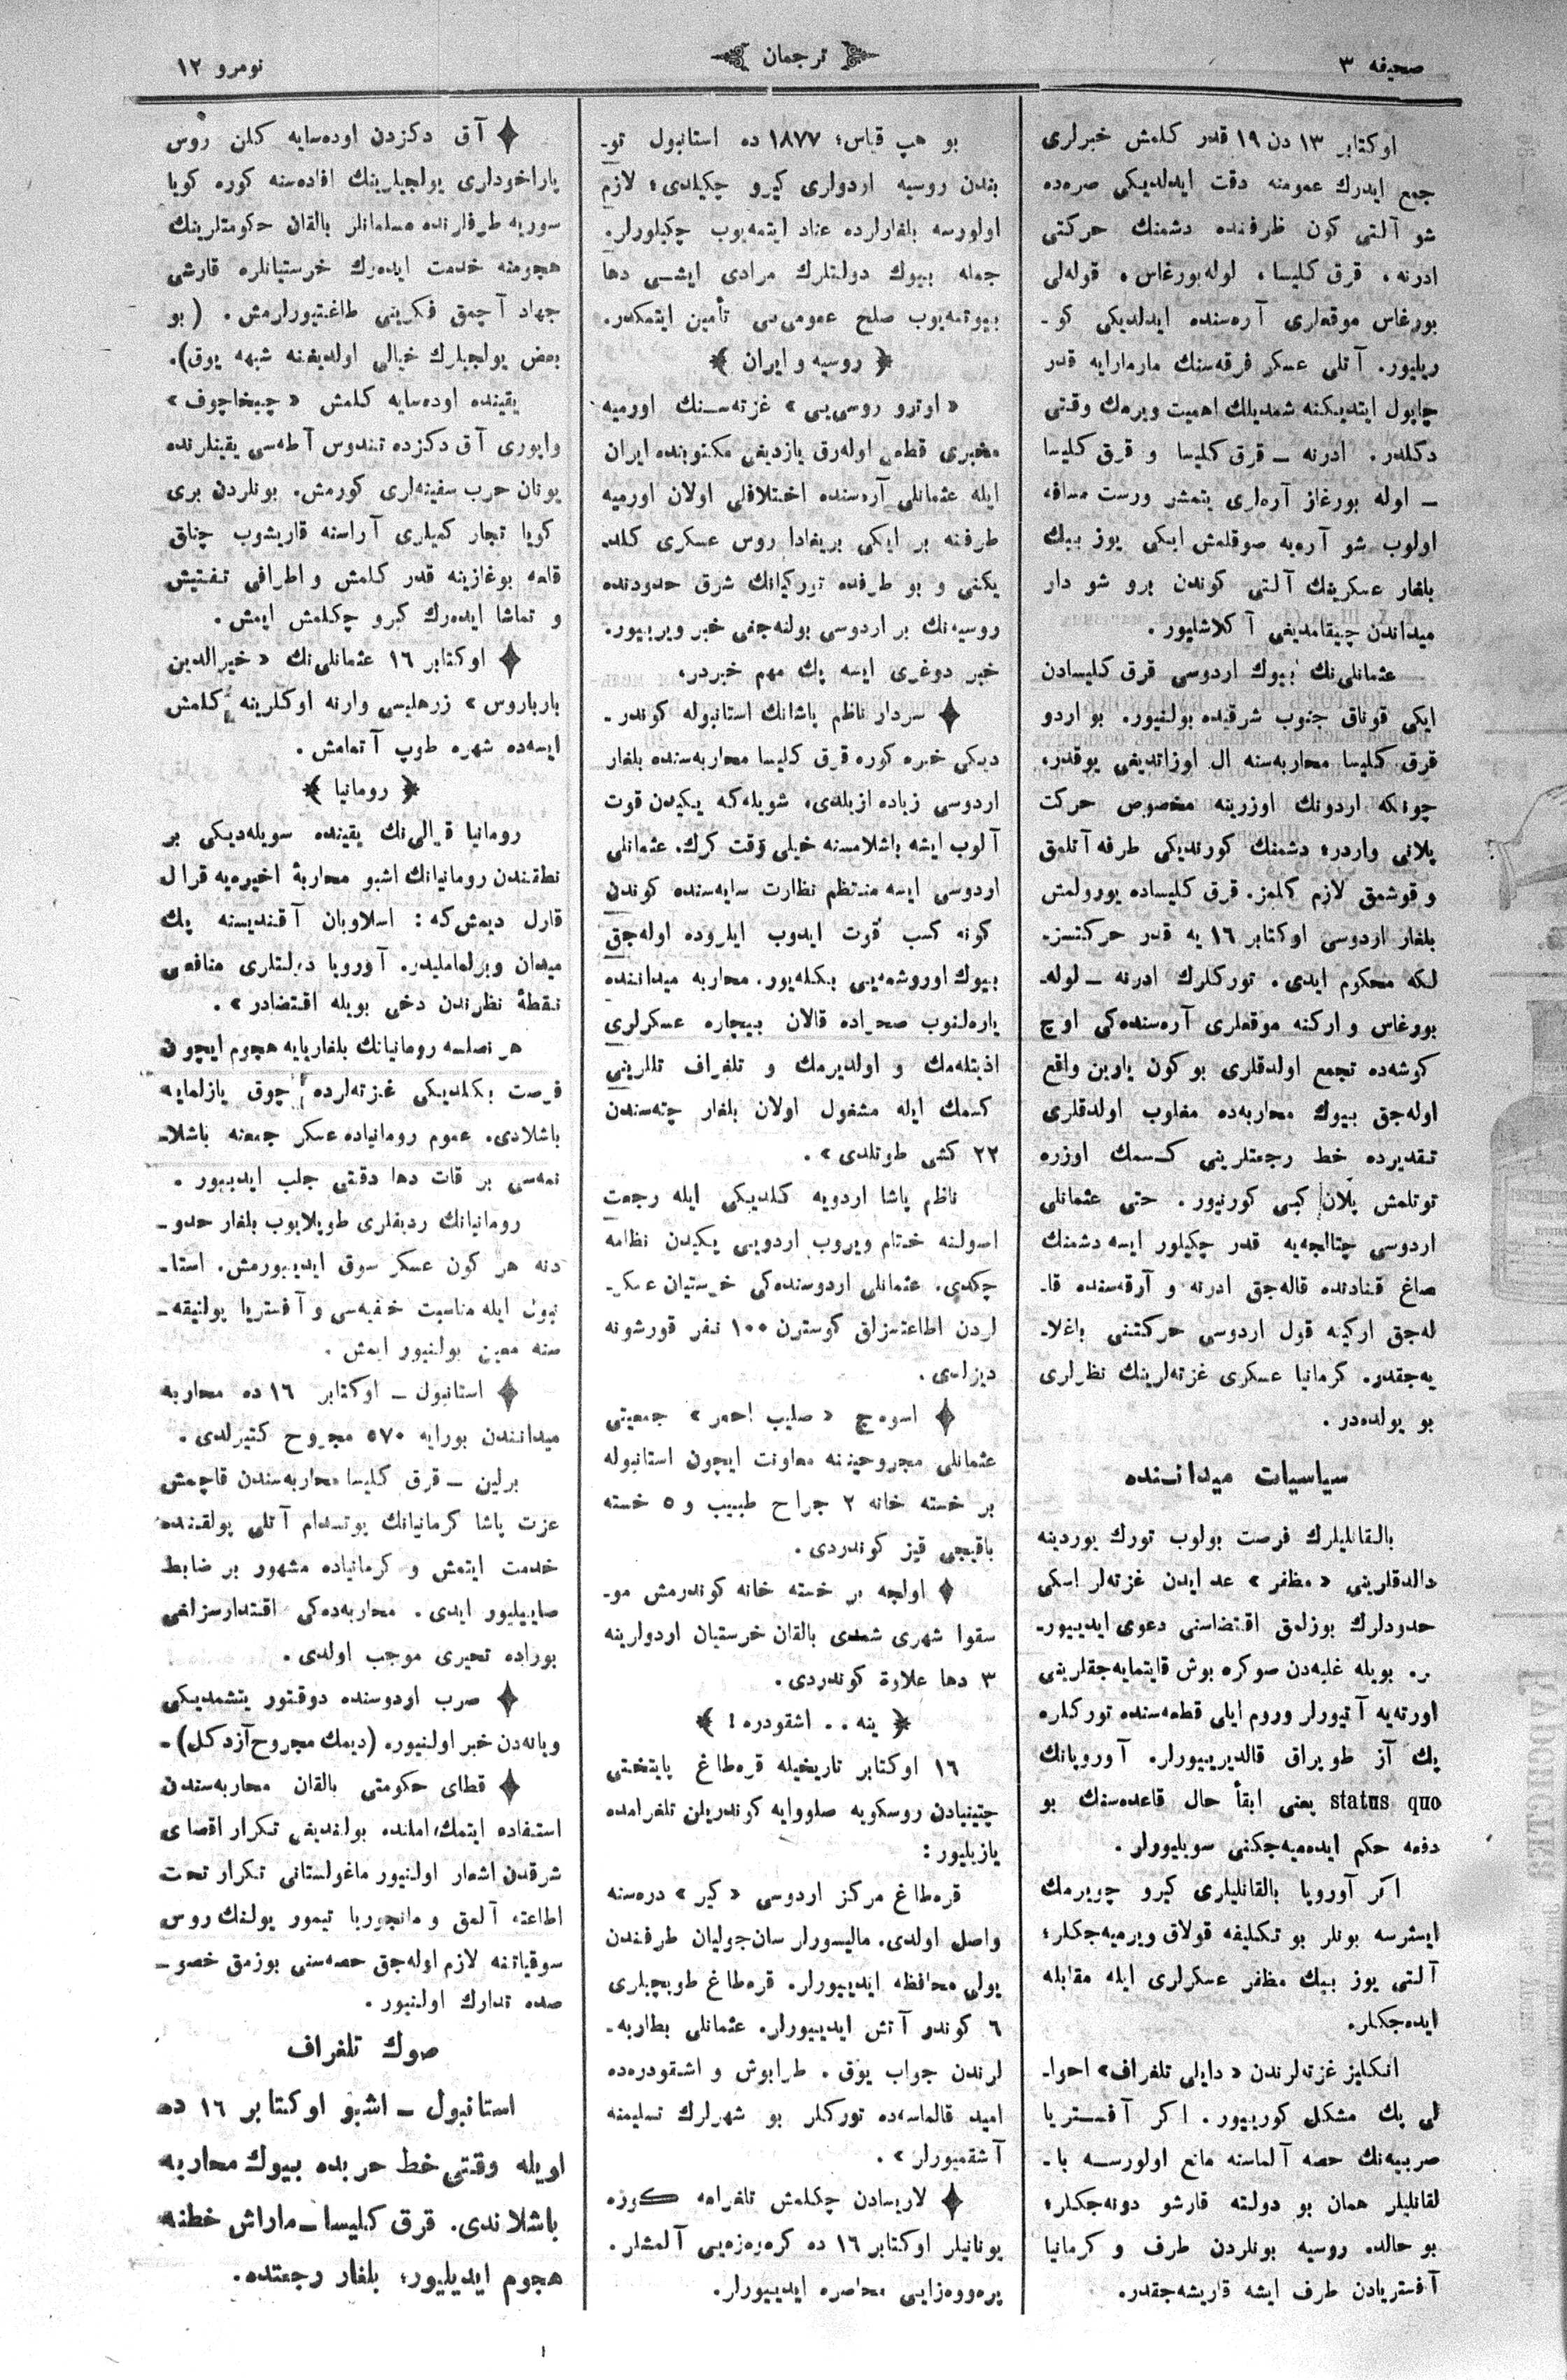 صحیفه ٣
ترجمان
نومرو ١٢
اوکتابر ١٣ دن ١٩ قدر کلمش خبرلری
جمع ایدرك عمومنه دقت ایدلدیکی صره‌ده
شو آلتی کون ظرفنده دشمنك حرکتی
ادرنه، قرق کلیسا، لوله‌بورغاس، قوله‌لی
بورغاس موقعلری آره‌سنده ایدلدیکی کو-
ریلیور. آتلی عسکر فرقه‌سنك مارمارایه قدر
چاپول ایتدیکنه شمدیلك اهمیت ویرمك وقتی
دکلدر. ادرنه ــ قرق کلیسا و قرق کلیسا
ــ لوله بورغاز آره‌لری یتمشر ورست مسافه
اولوب شو آره‌یه صوقلمش ایکی یوز بیك
بلغار عسکرینك آلتی کوندن برو شو دار
میداندن چیقامدیغی آکلاشلیور.
عثمانلی‌نك بیوك اردوسی قرق کلیسادن
ایکی قوناق جنوب شرقنده بولنیور. بو اردو
قرق کلیسا محاربه‌سنه ال اوزاتدیغی یوقدر،
چونکه اردونك اوزرینه مخصوص حرکت
پلانی واردر؛ دشمنك کورندیکی طرفه آتلمق
و قوشمق لازم کلمز. قرق کلیساده یورولمش
بلغار اردوسی اوکتابر ١٦ یه قدر حرکتسز-
لکه محکوم ایدی. تورکلرك ادرنه ــ لوله-
بورغاس و ارکنه موقعلری آره‌سنده‌کی اوچ
کوشه‌ده تجمع اولدقلری بو کون یارین واقع
اوله‌جق بیوك محاربه‌ده مغلوب اولدقلری
تقدیرده خط رجعتلرینی کسمك اوزره
توتلمش پلان کبی کورنیور. حتی عثمانلی
اردوسی چتالجه‌یه قدر چکیلور ایسه دشمنك
صاغ قنادنده قاله‌جق ادرنه و آرقه‌سنده قا-
له‌جق ارکینه قول اردوسی حرکتنی باغلا-
یه‌جقدر. کرمانیا عسکری غزته‌لرینك نظرلری
بو یولده‌در.
سیاسیات میداننده
بالقانلیلرك فرصت بولوب تورك یوردینه
دالدقلرینی «مظفر» عد ایدن غزته‌لر اسکی
حدودلرك بوزلمق اقتضاسنی دعوی ایدییور-
ر. بویله غلبه‌دن صوکره بوش قایتمایه‌جقلرینی
اورته‌یه آتیورلر وروم ایلی قطعه‌سنده تورکلره
پك آز طوپراق قالدیریییورلر. آوروپانك
status quo یعنی ابقأ حال قاعده‌سنك بو
دفعه حکم ایده‌میه‌جکنی سویلیوورلر.
اکر آوروپا بالقانلیلری کیرو چویرمك
ایسترسه بونلر بو تکلیفه قولاق ویرمیه‌جکلر؛
آلتی یوز بیك مظفر عسکرلری ایله مقابله
ایده‌جکلر.
انکلیز غزته‌لرندن «دایلی تلغراف» احوا-
لی پك مشکل کورییور. اکر آفستریا
صربیه‌نك حصه آلماسنه مانع اولورسه با-
لقانلیلر همان بو دولته قارشو دونه‌جکلر؛
بو حالده روسیه بونلردن طرف و کرمانیا
آفستریادن طرف ایشه قاریشه‌جقدر.
بو هپ قیاس؛ ١٨٧٧ ده استانبول تو-
بندن روسیه اردولری کیرو چکیلدی؛ لازم
اولورسه بلغارلرده عناد ایتمه‌یوب چکیلورلر.
جمله بیوك دولتلرك مرادی ایشی دها
بیوتمه‌یوب صلح عمومی‌یی تأمین ایتمکدر.
﴿ روسیه و ایران ﴾
«اوترو روسی‌یی» غزته‌سنك اورمیه
مخبری قطعی اوله‌رق یازدیغی مکتوبنده ایران
ایله عثمانلی آره‌سنده اختلافلی اولان اورمیه
طرفنه بر ایکی بریغادا روس عسکری کلد-
یکنی و بو طرفده تورکیانك شرق حدودنده
روسیه‌نك بر اردوسی بولنه‌جغی خبر ویرییور.
خبر دوغری ایسه پك مهم خبردر.
سردار ناظم پاشانك استانبوله کوندر-
دیکی خبره کوره قرق کلیسا محاربه‌سنده بلغار
اردوسی زیاده ازیلدی، شویله‌که یکیدن قوت
آلوب ایشه باشلامسنه خیلی وقت کرك. عثمانلی
اردوسی ایسه منتظم نظارت سایه‌سنده کوندن
کونه کسب قوت ایدوب ایلروده اوله‌جق
بیوك اوروشمه‌یی بکله‌یور. محاربه میداننده
یاره‌لنوب صحراده قالان بیچاره عسکرلری
اذیتله‌مك و اولدیرمك و تلغراف تللرینی
کسمك ایله مشغول اولان بلغار چته‌سندن
٢٢ کشی طوتلدی».
ناظم پاشا اردویه کلدیکی ایله رجعت
اصولنه ختام ویروب اردویی یکیدن نظامه
چکدی. عثمانلی اردوسنده‌کی خرستیان عسکر-
لردن اطاعتسزلق کوسترن ١٠٠ نفر قورشونه
دیزلدی.
اسوه‌چ «صلیب احمر» جمعیتی
عثمانلی مجروحیننه معاونت ایچون استانبوله
بر خسته خانه ٢ جراح طبیب و ٥ خسته
باقیجی قیز کوندردی.
اولجه بر خسته خانه کوندرمش مو-
سقوا شهری شمدی بالقان خرستیان اردولرینه
٣ دها علاوة کوندردی.
﴿ ینه .. اشقودره! ﴾
١٦ اوکتابر تاریخیله قره‌طاغ پایتختی
چتینیادن روسکویه صلووایه کوندریلن تلغرامده
یازیلیور:
قره‌طاغ مرکز اردوسی «کیر» دره‌سنه
واصل اولدی. مالیسورلر سان‌جولیان طرفندن
یولی محافظه ایدییورلر. قره‌طاغ طوبچیلری
٦ کوندر آتش ایدییورلر. عثمانلی بطاریه-
لرندن جواب یوق. طرابوش و اشقودره‌ده
امید قالماسه‌ده تورکلر بو شهرلرك تسلیمنه
آشقمیورلر».
لاریسادن چکلمش تلغرامه کوره
یونانیلر اوکتابر ١٦ ده کره‌وه‌زه‌یی آلمشلر.
پره‌ووه‌زایی محاصره ایدییورلر.
آق دکزدن اوده‌سایه کلن روس
پاراخودلری یولجیلرینك افاده‌سنه کوره کویا
سوریه طرفلرنده مسلمانلر بالقان حکومتلرینك
هجومنه خدمت ایده‌رك خرستیانلره قارشی
جهاد آچمق فکرینی طاغتیورلرمش. (بو
بعض یولجیلرك خیالی اولدیغنه شبهه یوق).
یقینده اوده‌سایه کلمش «چیخاچوف»
واپوری آق دکزده تندوس آطه‌سی یقینلرنده
یونان حرب سفینه‌لری کورمش. بونلردن بری
کویا تجار کمیلری آراسنه قاریشوب چناق
قلعه بوغازینه قدر کلمش و اطرافی تفتیش
و تماشا ایده‌رك کیرو چکلمش ایمش.
اوکتابر ١٦ عثمانلی‌نك «خیرالدین
بارباروس» زرهلیسی وارنه اوکلرینه کلمش
ایسه‌ده شهره طوپ آتمامش.
﴿ رومانیا ﴾
رومانیا قرالی‌نك یقینده سویله‌دیکی بر
نطقندن رومانیانك اشبو محاربهٔ اخیره‌یه قرال
قارل دیمش‌که: اسلاویان آقندیسنه پك
میدان ویرلماملیدر. آوروپا دولتلری منافعی
نقطهٔ نظرندن دخی بویله اقتضادر».
هر نصلسه رومانیانك بلغاریایه هجوم ایچون
فرصت بکلدیکی غزته‌لرده چوق یازلمایه
باشلادی. عموم رومانیاده عسکر جمعنه باشلا-
نمه‌سی بر قات دها دقتی جلب ایدییور.
رومانیانك ردیفلری طوپلایوب بلغار حدو-
دنه هر کون عسکر سوق ایدییورمش. استا-
نبول ایله مناسبت خفیه‌سی و آفستریا پولتیقه-
سنه معین بولنیور ایمش.
استانبول ــ اوکتابر ١٦ ده محاربه
میدانندن بورایه ٥٧٠ مجروح کتیرلدی.
برلین ــ قرق کلیسا محاربه‌سندن قاچمش
عزت پاشا کرمانیانك پوتسدام آتلی پولقنده
خدمت ایتمش و کرمانیاده مشهور بر ضابط
صاییلیور ایدی. محاربه‌ده‌کی اقتدارسزلغی
بوراده تحیری موجب اولدی.
صرب اردوسنده دوقتور یتشمدیکی
ویانه‌دن خبر اولنیور. (دیمك مجروح آز دکل)-
قطای حکومتی بالقان محاربه‌سندن
استفاده ایتمك املنده بولندیغی تکرار اقصای
شرقدن اشعار اولنیور ماغولستانی تکرار تحت
اطاعته آلمق و مانچوریا تیمور یولنك روس
سوقیاتنه لازم اوله‌جق حصه‌سنی بوزمق خصو-
صده تدارك اولنیور.
صوك تلغراف
استانبول ــ اشبو اوکتابر ١٦ ده
اویله وقتی خط حربده بیوك محاربه
باشلاندی. قرق کلیسا ــ ماراش خطنه
هجوم ایدیلیور؛ بلغار رجعتده.